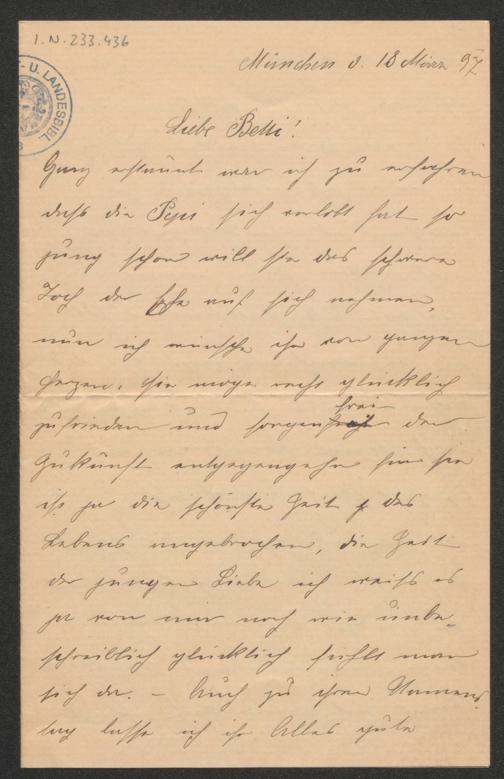 I.N. 233.436
- U. LANDESBIBL
München d. 18 März 97
Liebe Betti!
Ganz erstaunt war ich zu erfahren
daß die Pepi sich verlobt hat so
jung schon will sie das schwere
Joch der Ehe auf sich nehmen,
nun ich wünsche ihr von ganzen
Herzen, sie möge recht glücklich
zufrieden und sorgenfrei der
Zukunft entgegengehn für sie
ist ja die schönste Zeit des
Lebens angebrochen, die Zeit
der jungen Liebe ich weiß es
ja von mir noch wie unbe-
schreiblich glücklich fühlt man
sich da. – Auch zu ihren Namens
tag lasse ich ihr Alles gute